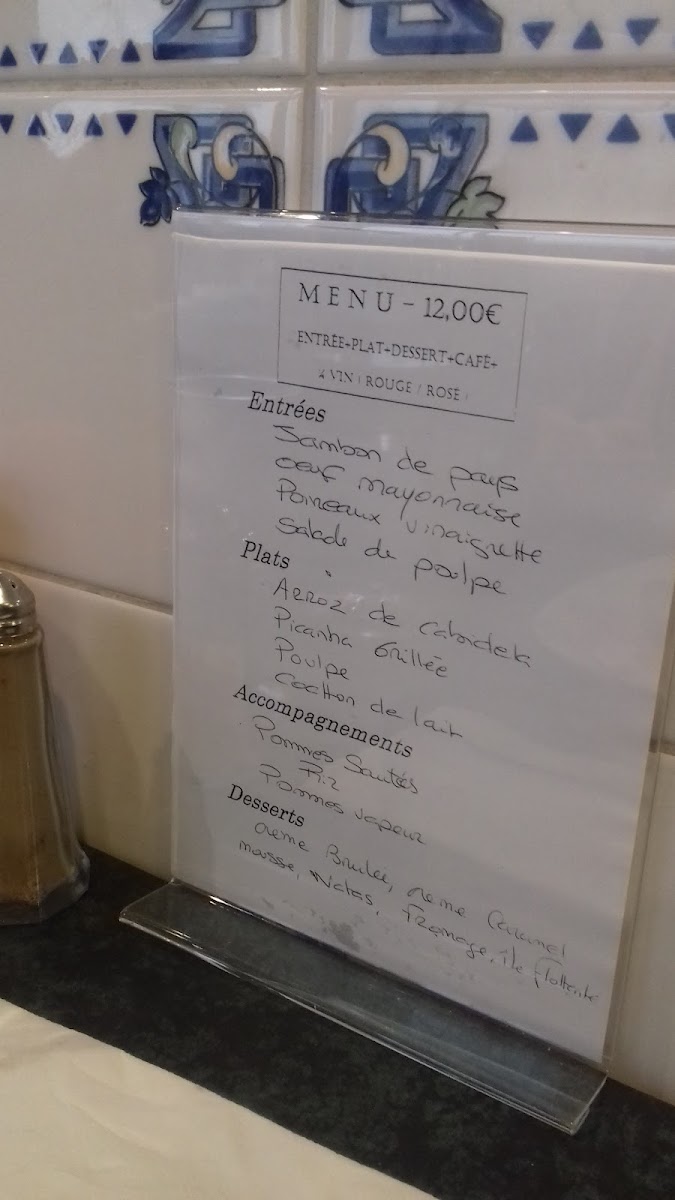 MENU - 12,00€
ENTRÉE+PLAT+DESSERT+CAFÉ+
¼ VIN ( ROUGE / ROSÉ )
Entrées
Jambon de pays
oeuf mayonnaise
Poireaux vinaigrette
Salade de poulpe
Plats
Arroz de Cabidela
Picanha Grillée
Poulpe
Cochon de lait
Accompagnements
Pommes Sautés
Riz
Pommes vapeur
Desserts
creme Brulee, creme Caramel
mousse, Natas, fromage, île flottante